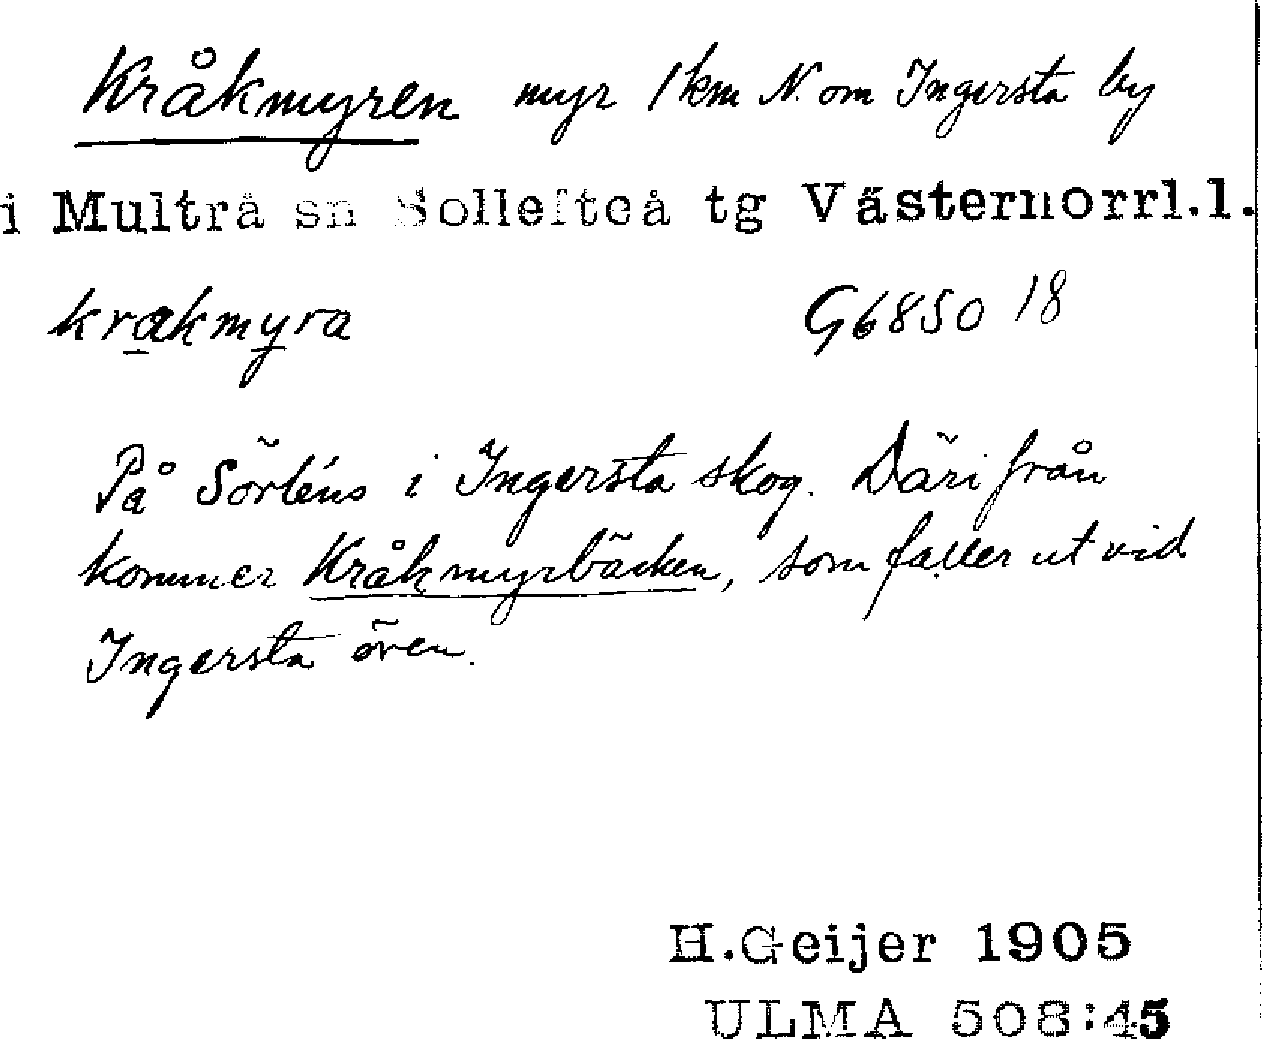 Kråkmyren myr 1 km N. om Ingersta by
i Multrå sn Sollefteå tg Västernorrl.l.
krakmyra G6850 18
På Sörléns i Ingersta skog. Därifrån
kommer Kråkmyrbäcken, som faller ut vid
Ingersta ören.
H.Geijer 1905
ULMA 508:45